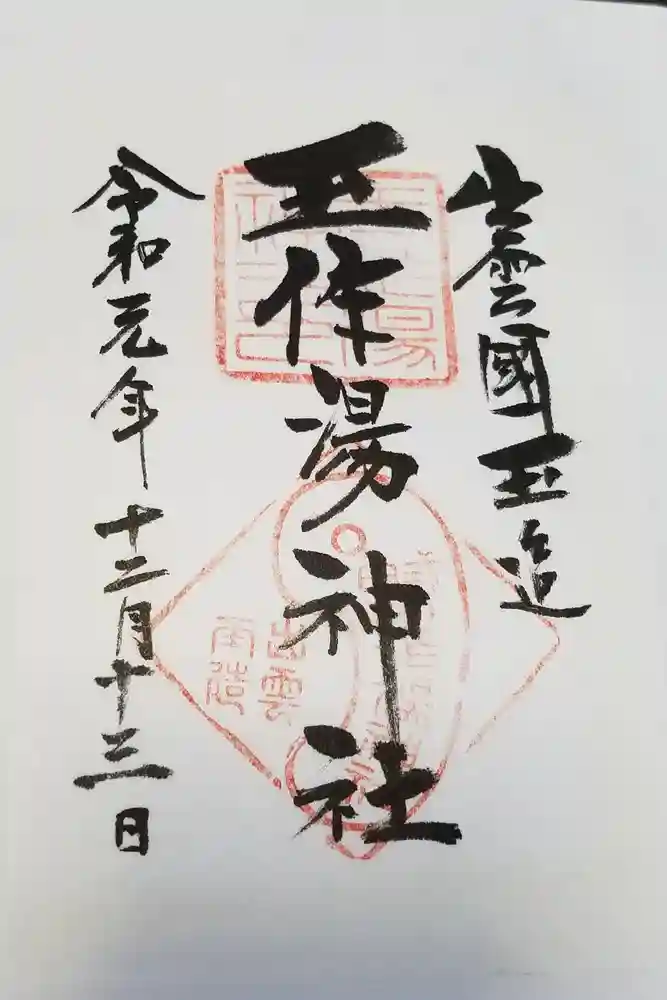 出雲國玉造
玉作湯神社
令和元年十二月十三日
出雲
玉造